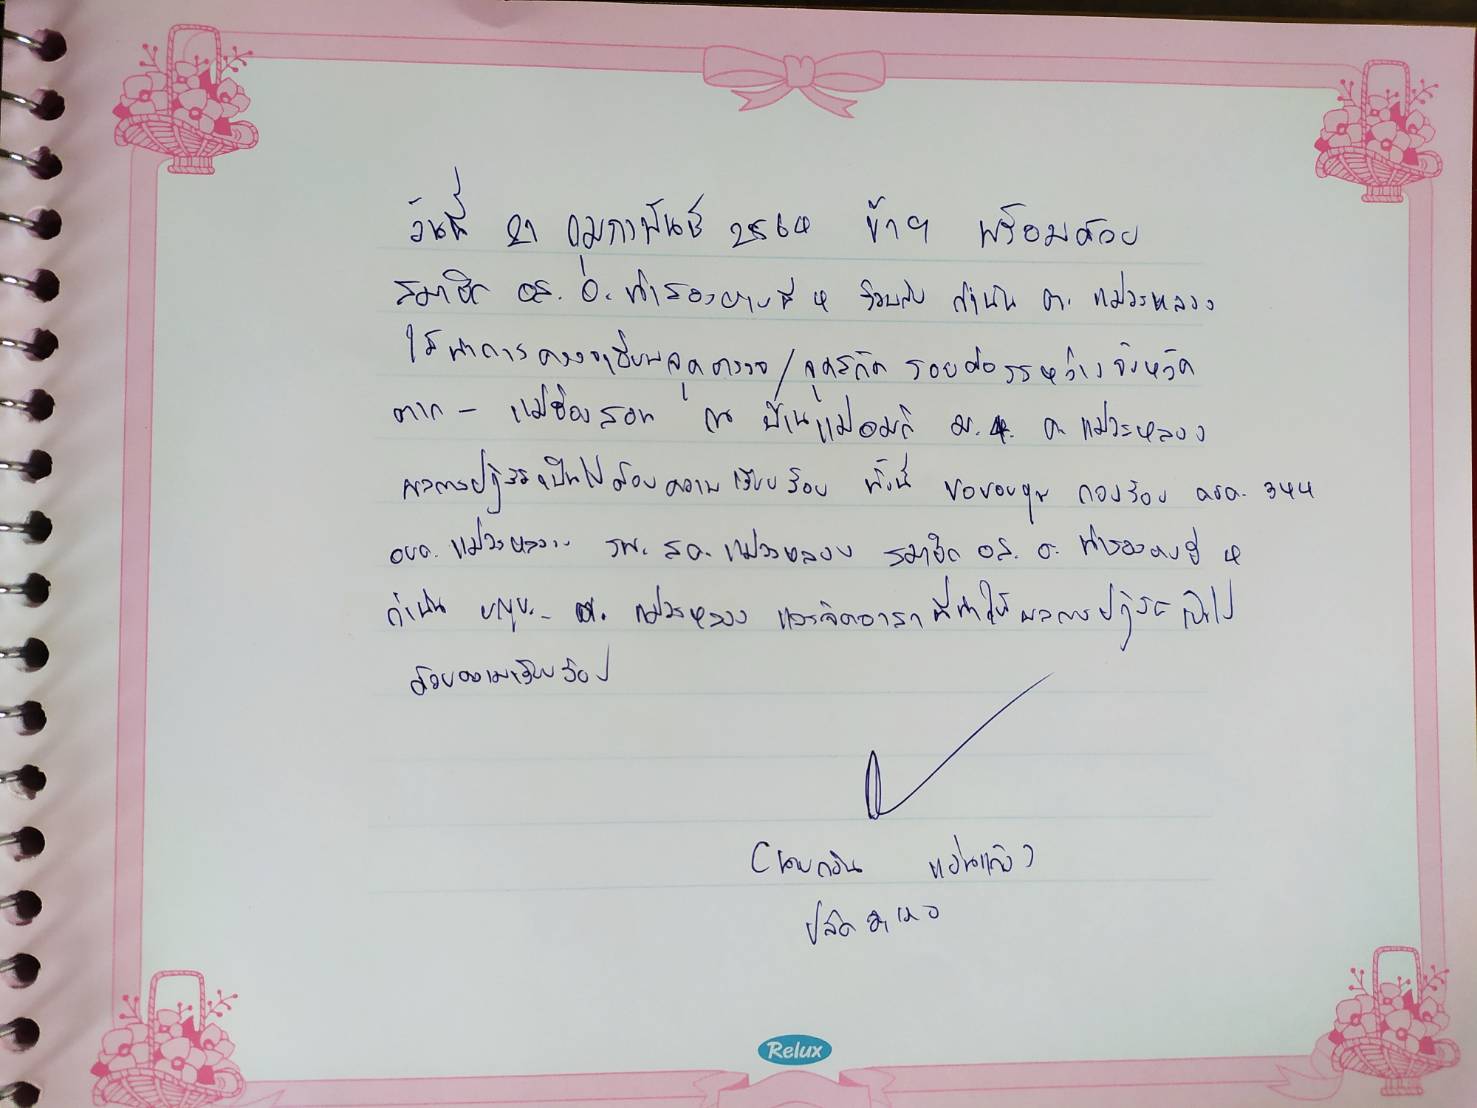 วันที่ 21 กุมภาพันธ์ 2564 ข้าฯ พร้อมด้วย
สมาชิก อส. อ. ท่าสองยางที่ 4 ร่วมกับ กำนัน ต. แม่วะหลวง
ได้ทำการตรวจเยี่ยมจุดตรวจ/จุดสกัด รอยต่อระหว่างจังหวัด
ตาก - แม่ฮ่องสอน ณ บ้านแม่อมกิ ม. 4. ต. แม่วะหลวง
ผลการปฏิบัติเป็นไปด้วยความเรียบร้อย ทั้งนี้ ขอขอบคุณ กองร้อย ตชด. 344
อบต. แม่วะหลวง รพ. สต. แม่วะหลวง สมาชิก อส. อ. ท่าสองยางที่ 4
กำนัน ผญบ. ต. แม่วะหลวง และจิตอาสา ที่ทำให้ผลการปฏิบัติเป็นไป
ด้วยความเรียบร้อย
(นายกวิน
ปลัดอำเภอ
Relux